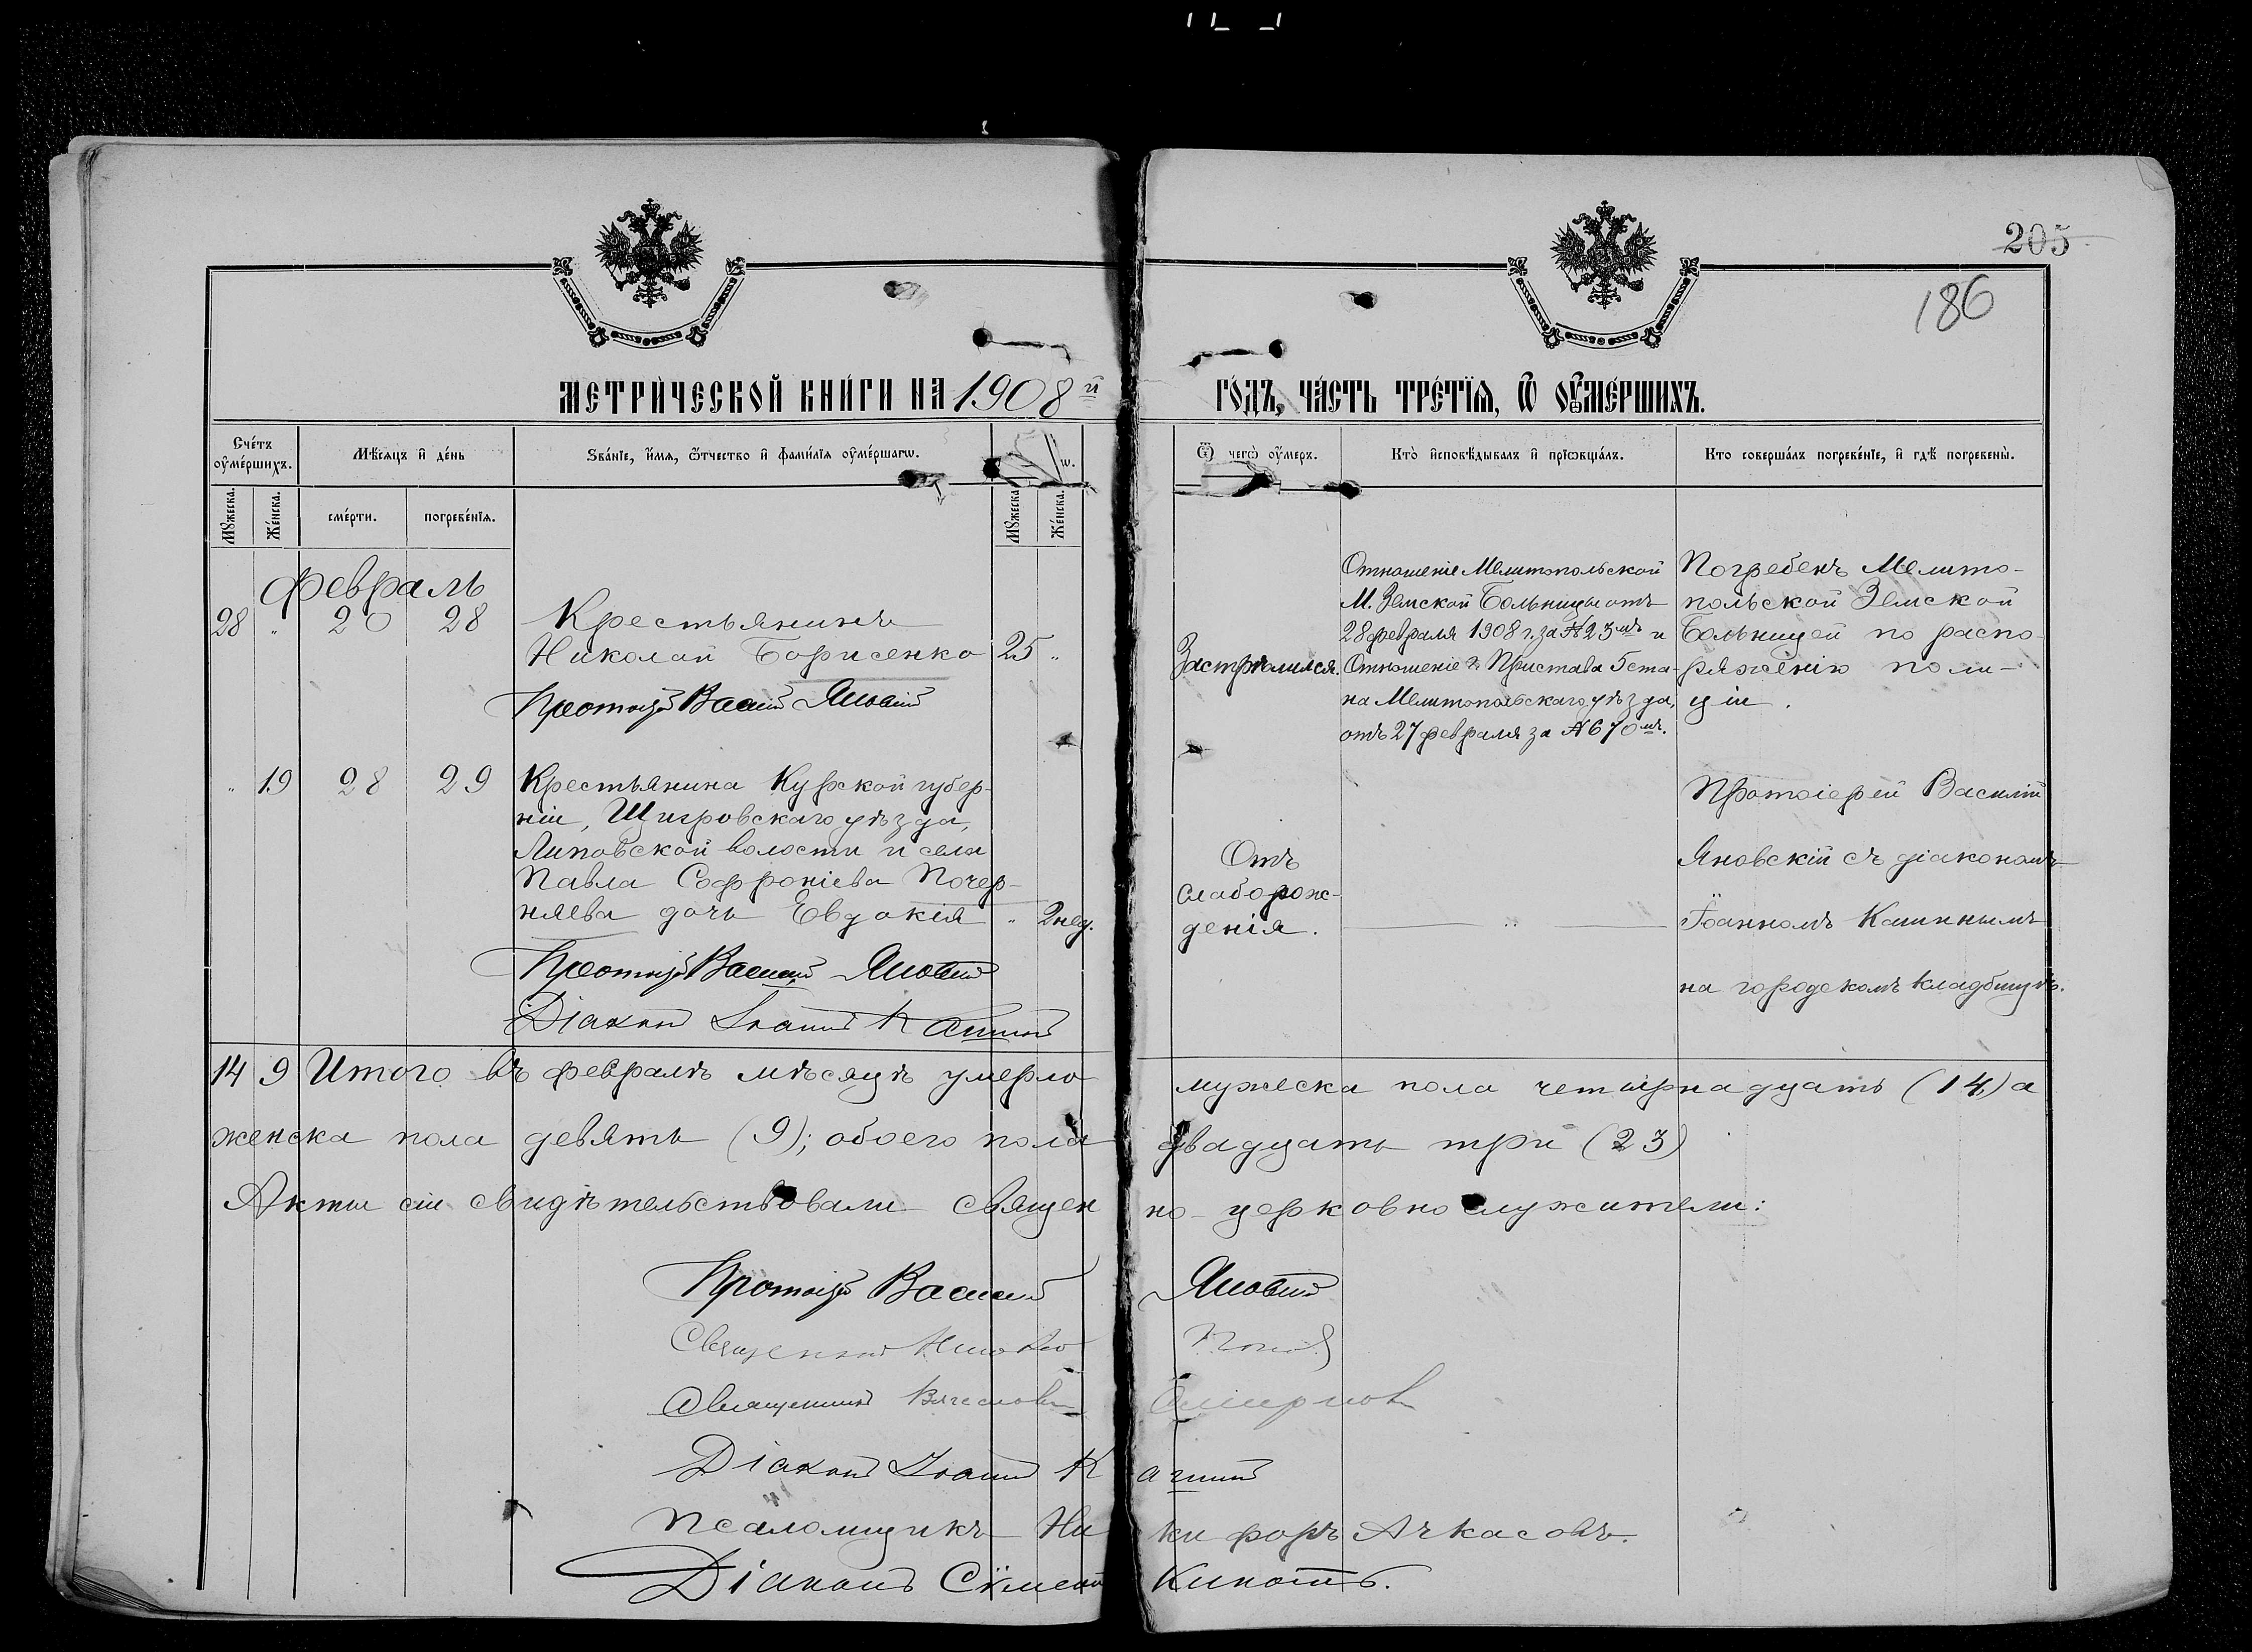 205
186
МЕТРИ́ЧЕСКОЙ КНИ́ГИ НА 1908 й
ГО́ДЪ, ЧА́СТЬ ТРЕ́ТЇѦ, Ѿ ОУ҆МЕ́РШИХЪ.
Сче́тъ оу҆ме́ршихъ.
Мѣ́сѧцъ и҆ де́нь
Зва́нїе, и҆́мѧ, ѻ҆́тчество и҆ фами́лїѧ оу҆ме́ршагѡ.
Ѿ чегѡ̀ оу҆́меръ.
Кто̀ и҆сповѣ́дывалъ и҆ прїѡбща́лъ.
Кто соверша́лъ погребе́нїе, и҆ гдѣ̀ погребены̀.
Мꙋ́жеска.
Же́нска.
сме́рти.
погребе́нїѧ.
Мꙋ́жеска
Же́нска.
Февраль
28 " 20 28 Крестьянинъ
Николай Борисенко 25 "
Протоіерей Василій Яновскій
Застрѣлился.
Отношеніе Мелитопольской
М. Земской Больницы отъ
28 февраля 1908 г. за № 23мъ и
Отношеніе г. Пристава 5 ста-
на Мелитопольскаго уѣзда,
отъ 27 февраля за № 670мъ.
Погребенъ Мелито-
польской Земской
Больницей по распо-
ряженію поли-
ціи.
" 19 28 29 Крестьянина Курской губер-
ніи, Щигровскаго уѣзда,
Липовской волости и села
Павла Софроніева Почер-
няева дочь Евдокія " 2 нед.
Протоіерей Василій Яновскій
Діаконъ Іоаннъ Кашинъ
Отъ
слаборож-
денія.
"
Протоіерей Василій
Яновскій съ діакономъ
Іоанномъ Кашинымъ
на городскомъ кладбищѣ.
14 9 Итого въ февралѣ мѣсяцѣ умерло мужеска пола четырнадцать (14) а
женска пола девять (9); обоего пола двадцать три (23)
Акты сіи свидѣтельствовали священно-церковнослужители:
Протоіерей Василій Яновскій
Священникъ Попов
Священникъ Вячеславъ Смирновъ
Діаконъ Іоаннъ Кашинъ
Псаломщикъ Никифоръ Ачкасовъ.
Діаконъ Сѵмеонъ